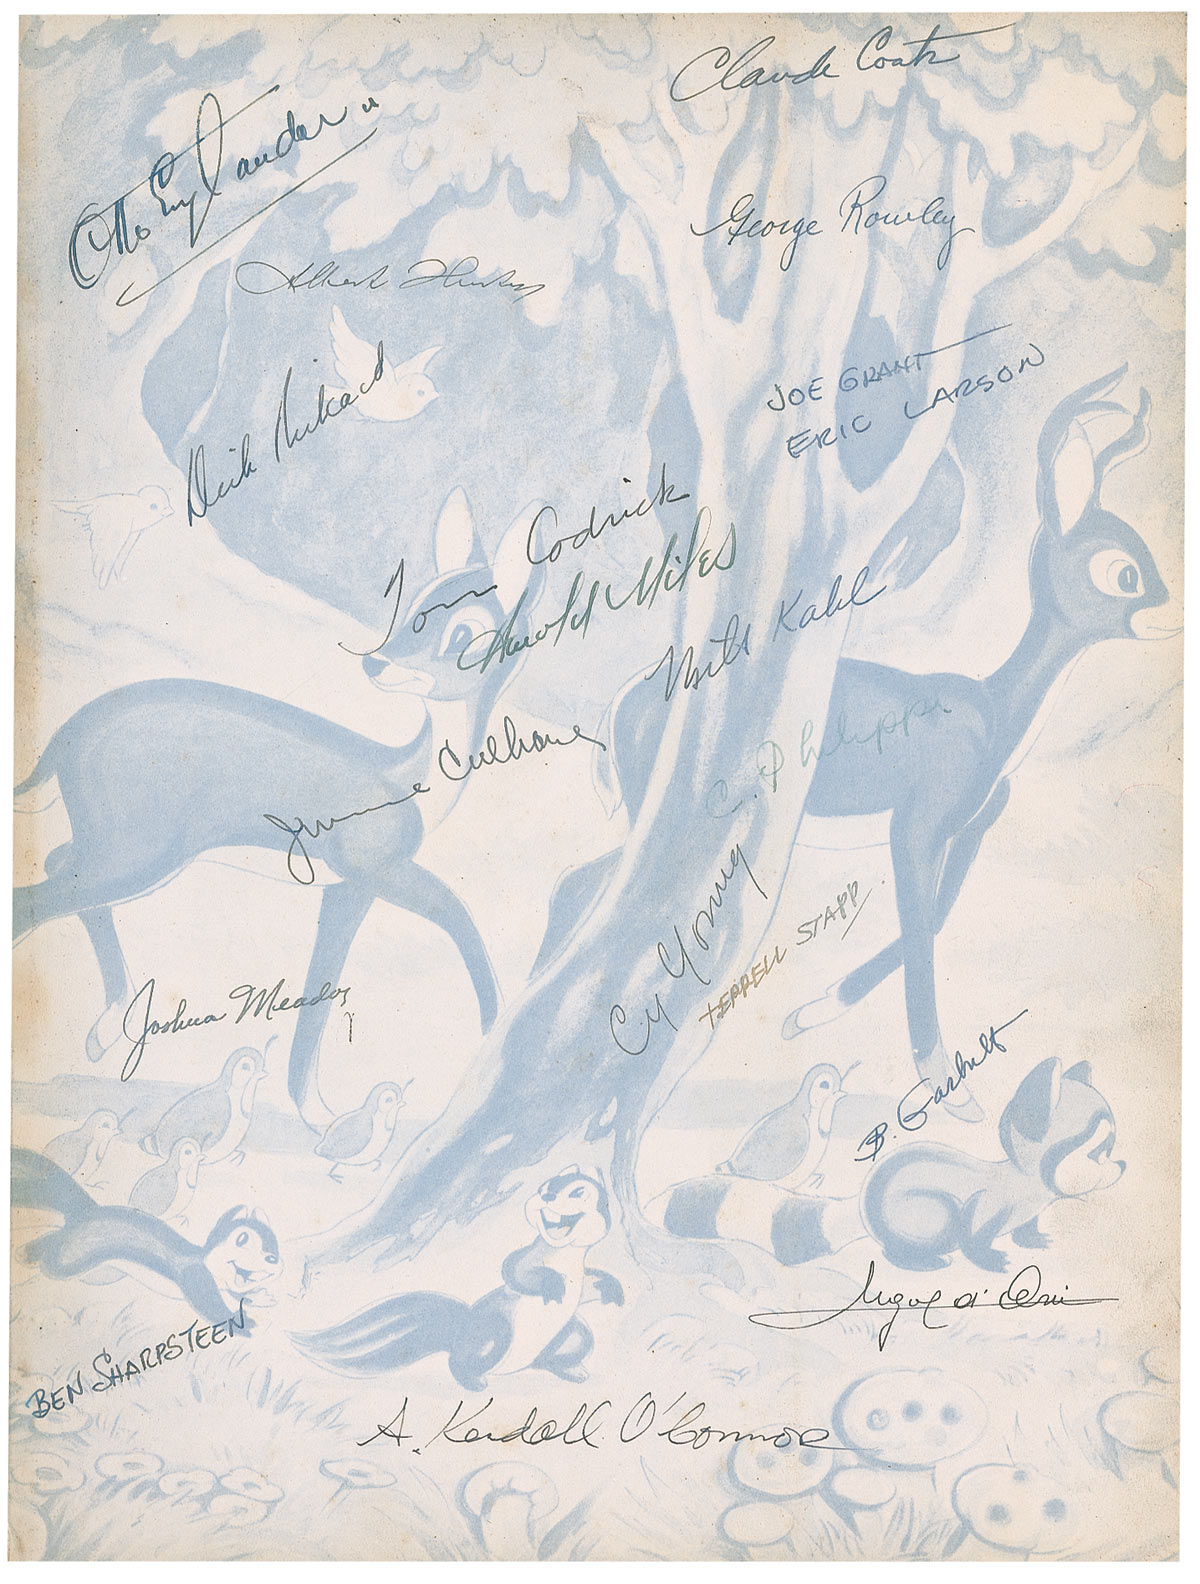 Claude Coats
Otto Englander
George Rowley
Albert Hurter
JOE GRANT
Dick Rickard
ERIC LARSON
Tom Codrick
Harold Miles
Milt Kahl
C. Philippi
Jimmie Culhane
Cy Young
TERRELL STAPP
Joshua Meador
B. Garbutt
BEN SHARPSTEEN
A. Kendall O'Connor